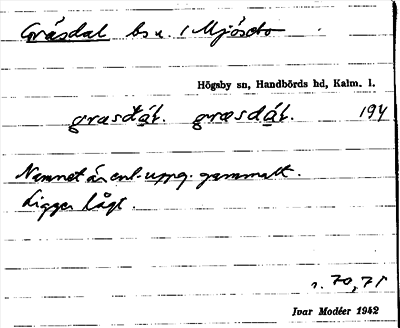 Gräsdal bs u. / Mjösebo
Högsby sn, Handbörds hd, Kalm. l.
græsda̱ɫ. græsda̱ɫ. 194
Namnet är enl. uppg. gammalt.
Ligger lågt.
s. 70, 71
Ivar Modéer 1942